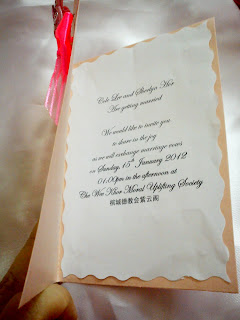 Cole Lee and Sherlyn Hor
Are getting married
We would like to invite you
to share in the joy
as we will exchange marriage vows
on Sunday, 15th January 2012
01.00pm in the afternoon at
Che Wan Khor Moral Uplifting Society
槟城德教会紫云阁